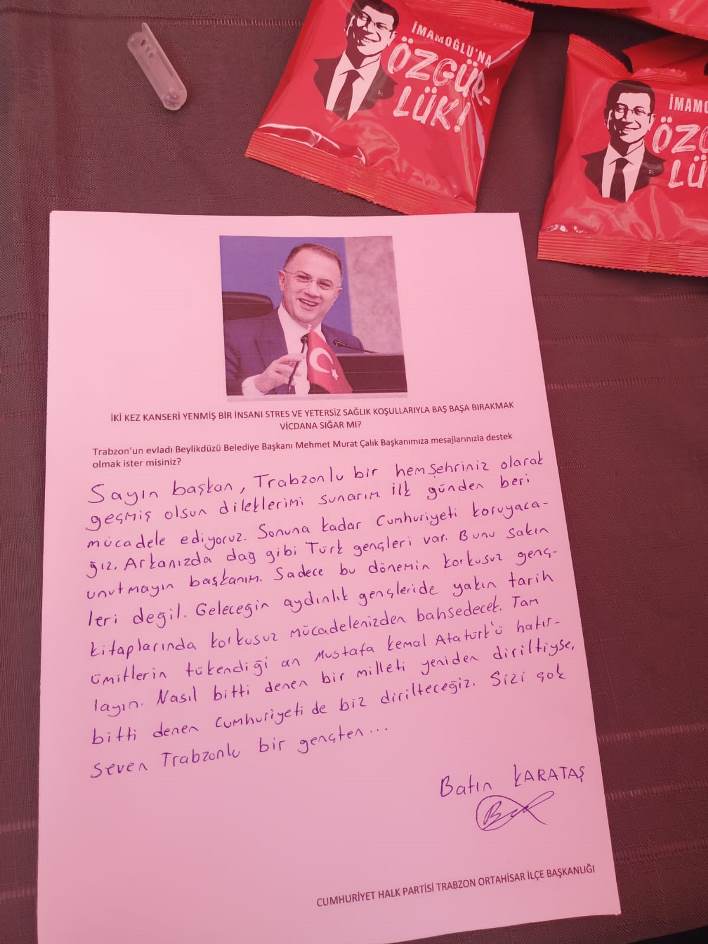 İMAMOĞLU'NA
ÖZGÜR-
LÜK!
İMAMO
ÖZG
LÜ
İKİ KEZ KANSERİ YENMİŞ BİR İNSANI STRES VE YETERSİZ SAĞLIK KOŞULLARIYLA BAŞ BAŞA BIRAKMAK
VİCDANA SIĞAR MI?
Trabzon'un evladı Beylikdüzü Belediye Başkanı Mehmet Murat Çalık Başkanımıza mesajlarınızla destek
olmak ister misiniz?
Sayın başkan, Trabzonlu bir hemşehriniz olarak
geçmiş olsun dileklerimi sunarım ilk günden beri
mücadele ediyoruz. Sonuna kadar Cumhuriyeti koruyaca-
ğız. Arkanızda dağ gibi Türk gençleri var. Bunu sakın
unutmayın başkanım. Sadece bu dönemin korkusuz genç-
leri değil. Geleceğin aydınlık gençleride yakın tarih
kitaplarında korkusuz mücadelenizden bahsedecek. Tam
ümitlerin tükendiği an Mustafa Kemal Atatürk'ü hatır-
layın. Nasıl bitti denen bir milleti yeniden diriltiyse,
bitti denen Cumhuriyeti de biz dirilteceğiz. Sizi çok
seven Trabzonlu bir gençten...
Batın KARATAŞ
CUMHURİYET HALK PARTİSİ TRABZON ORTAHİSAR İLÇE BAŞKANLIĞI